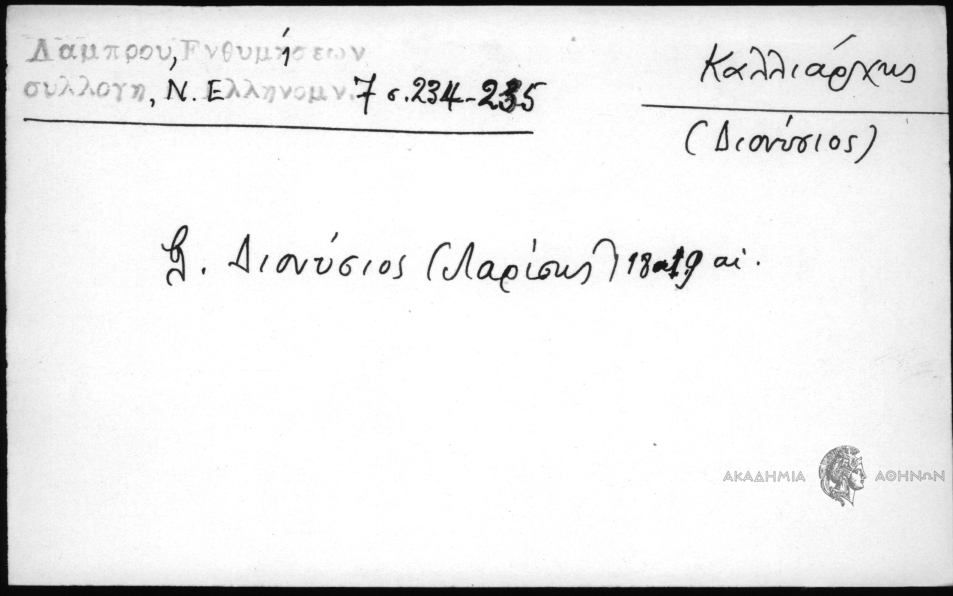 Λάμπρου, Ενθυμήσεων
συλλογή, Ν. Ελληνομν. 7 σ. 234-235
Καλλιάρχης
(Διονύσιος)
Διονύσιος (Λαρίσης) 18-19 αἰ.
ΑΚΑΔΗΜΙΑ ΑΘΗΝΩΝ